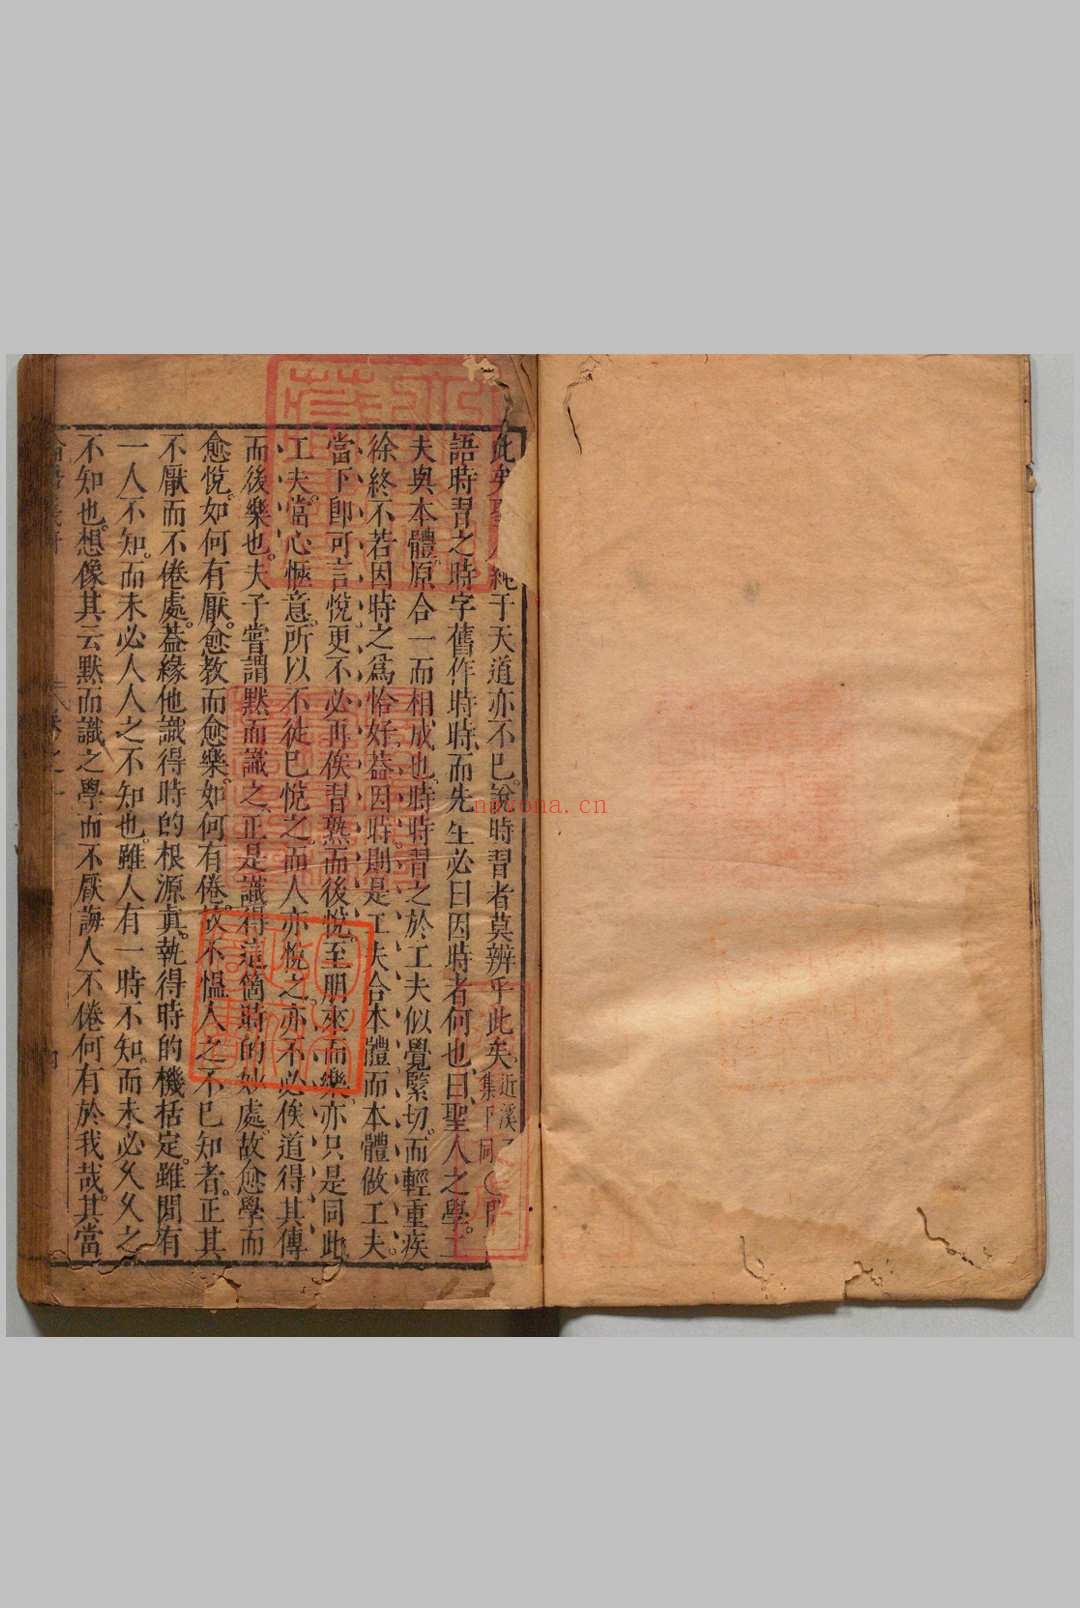 此矣聖純于天道亦不已說時習者莫辨乎此矣近溪集下同
語時習之時字舊作時時而先生必曰因時者何也曰聖人之學工
夫與本體原合一而相成也時時習之於工夫似覺緊切而輕重疾
徐終不若因時之爲恰好葢因時則是工夫合本體而本體做工夫
當下卽可言悅更不必再俟習熟而後悅至朋來而樂亦只是同此
工夫當心愜意所以不徒已悅之而人亦悅之亦不必俟道得其傳
而後樂也夫子嘗謂默而識之正是識得這箇時的妙處故愈學而
愈悅如何有厭愈教而愈樂如何有倦故不慍人之不已知者正其
不厭而不倦處葢緣他識得時的根源真執得時的機括定雖閒有
一人不知而未必人人之不知也雖人有一時不知而未必久久之
不知也想像其云默而識之學而不厭誨人不倦何有於我哉其當
卷之一
navona.cn